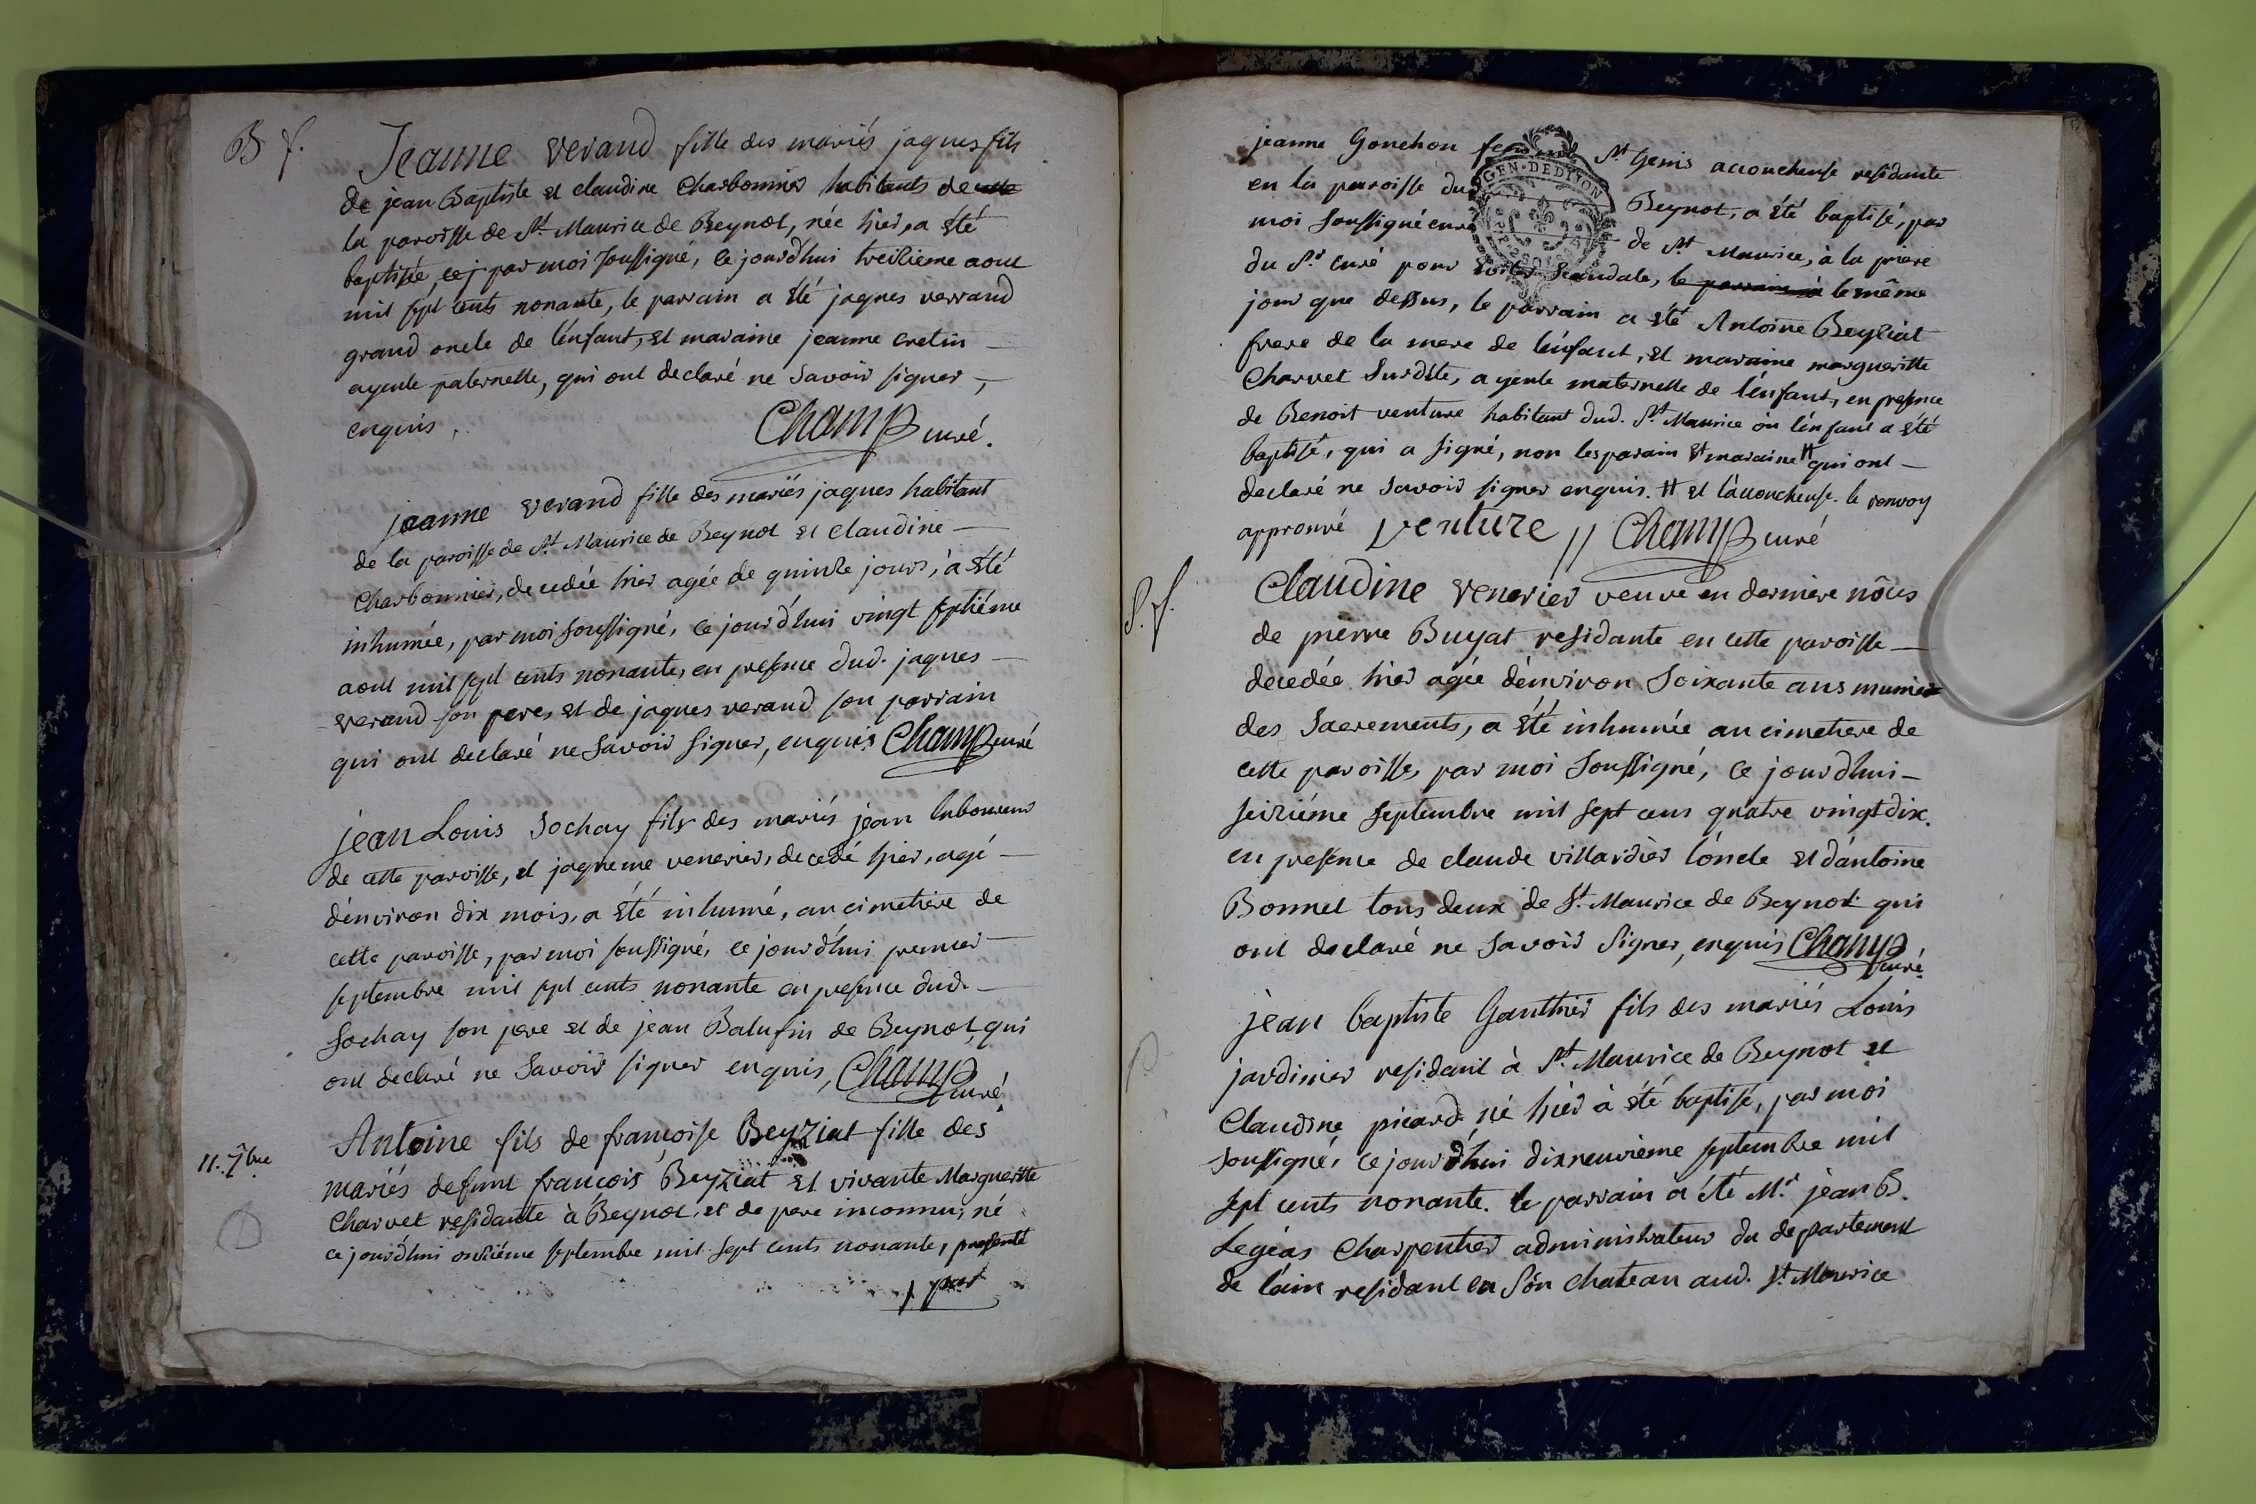 B f.
Jeanne verand fille des mariés jaques fils
de jean Baptiste et claudine Charbonnier habitants de cette
la paroisse de St. Maurice de Beynot, née hier, a été
baptisée, par moi soussigné, ce jourd'hui treizieme aout
mil sept cents nonante, le parrain a été jaques verrand
grand oncle de l'enfant, et maraine jeanne cretin –
ayeule paternelle, qui ont declaré ne savoir signer –,
enquis. Champ curé.
jeanne verand fille des mariés jaques habitant
de la paroisse de St. Maurice de Beynot et claudine –
Charbonnier, decedée hier agée de quinze jours, à été
inhumée, par moi soussigné, ce jourd'hui vingt septiéme
aout mil sept cents nonante, en presence dud. jaques –
verand son pere, et de jaques verand son parrain
qui ont declaré ne savoir signer, enquis Champ curé
jean Louis Sochay fils des mariés jean laboureur
de cette paroisse, et jaqueme venerier, decedé hier, agé –
d'environ dix mois, a été inhumé, au cimetiere de
cette paroisse, par moi soussigné, ce jourd'hui premier –
septembre mil sept cents nonante en presence dud. –
Sochay son pere et de jean Balufin de Beynot, qui
ont declaré ne savoir signer enquis, Champ
curé.
11. 7bre
Antoine fils de françoise Beyziat fille des
mariés defunt francois Beyziat et vivante Margueritte
Charvet residante à Beynot, et de pere inconnu, né
ce jourd'hui onziéme septembre mil sept cents nonante, presenté
par
jeanne Gonchon St Genis accoucheuse residante
en la paroisse du Beynot, a été baptisé, par
moi soussigné curé de St Maurice, à la priere
du Sr. curé pour eviter scandale, le parrain à le même
GEN. DE DIJON
jour que dessus, le parrain a été Antoine Beyziat
frere de la mere de l'enfant, et maraine margueritte
Charvet susdite, ayeule maternelle de l'enfant, en presence
de Benoit venture habitant dud. St Maurice où l'enfant a été
baptisé, qui a signé, non les parain et maraine # qui ont –
declaré ne savoir signer enquis. # et l'accoucheuse. le renvoy
approuvé venture // Champ curé
S. f.
Claudine venerier veuve en derniere nôces
de pierre Buyat residante en cette paroisse –
decedée hier agée d'environ soixante ans munie
des Sacrements, a été inhumée au cimetiere de
cette paroisse, par moi soussigné, ce jourd'hui –
seiziéme septembre mil sept cens quatre vingt dix.
en presence de claude villardier l'oncle et d'antoine
Bonnet tous deux de St. Maurice de Beynot qui
ont declaré ne savoir signer, enquis Champ
curé.
jean baptiste Gauthier fils des mariés Louis
jardinier residant à St. Maurice de Beynot et
Claudine picard né hier à été baptisé, par moi
soussigné, ce jourd'hui dixneuvième septembre mil
sept cents nonante. le parrain a été Mr. jean B.
Legeas Charpentier administrateur du departement
de l'ain residant en son chateau aud. St. Maurice